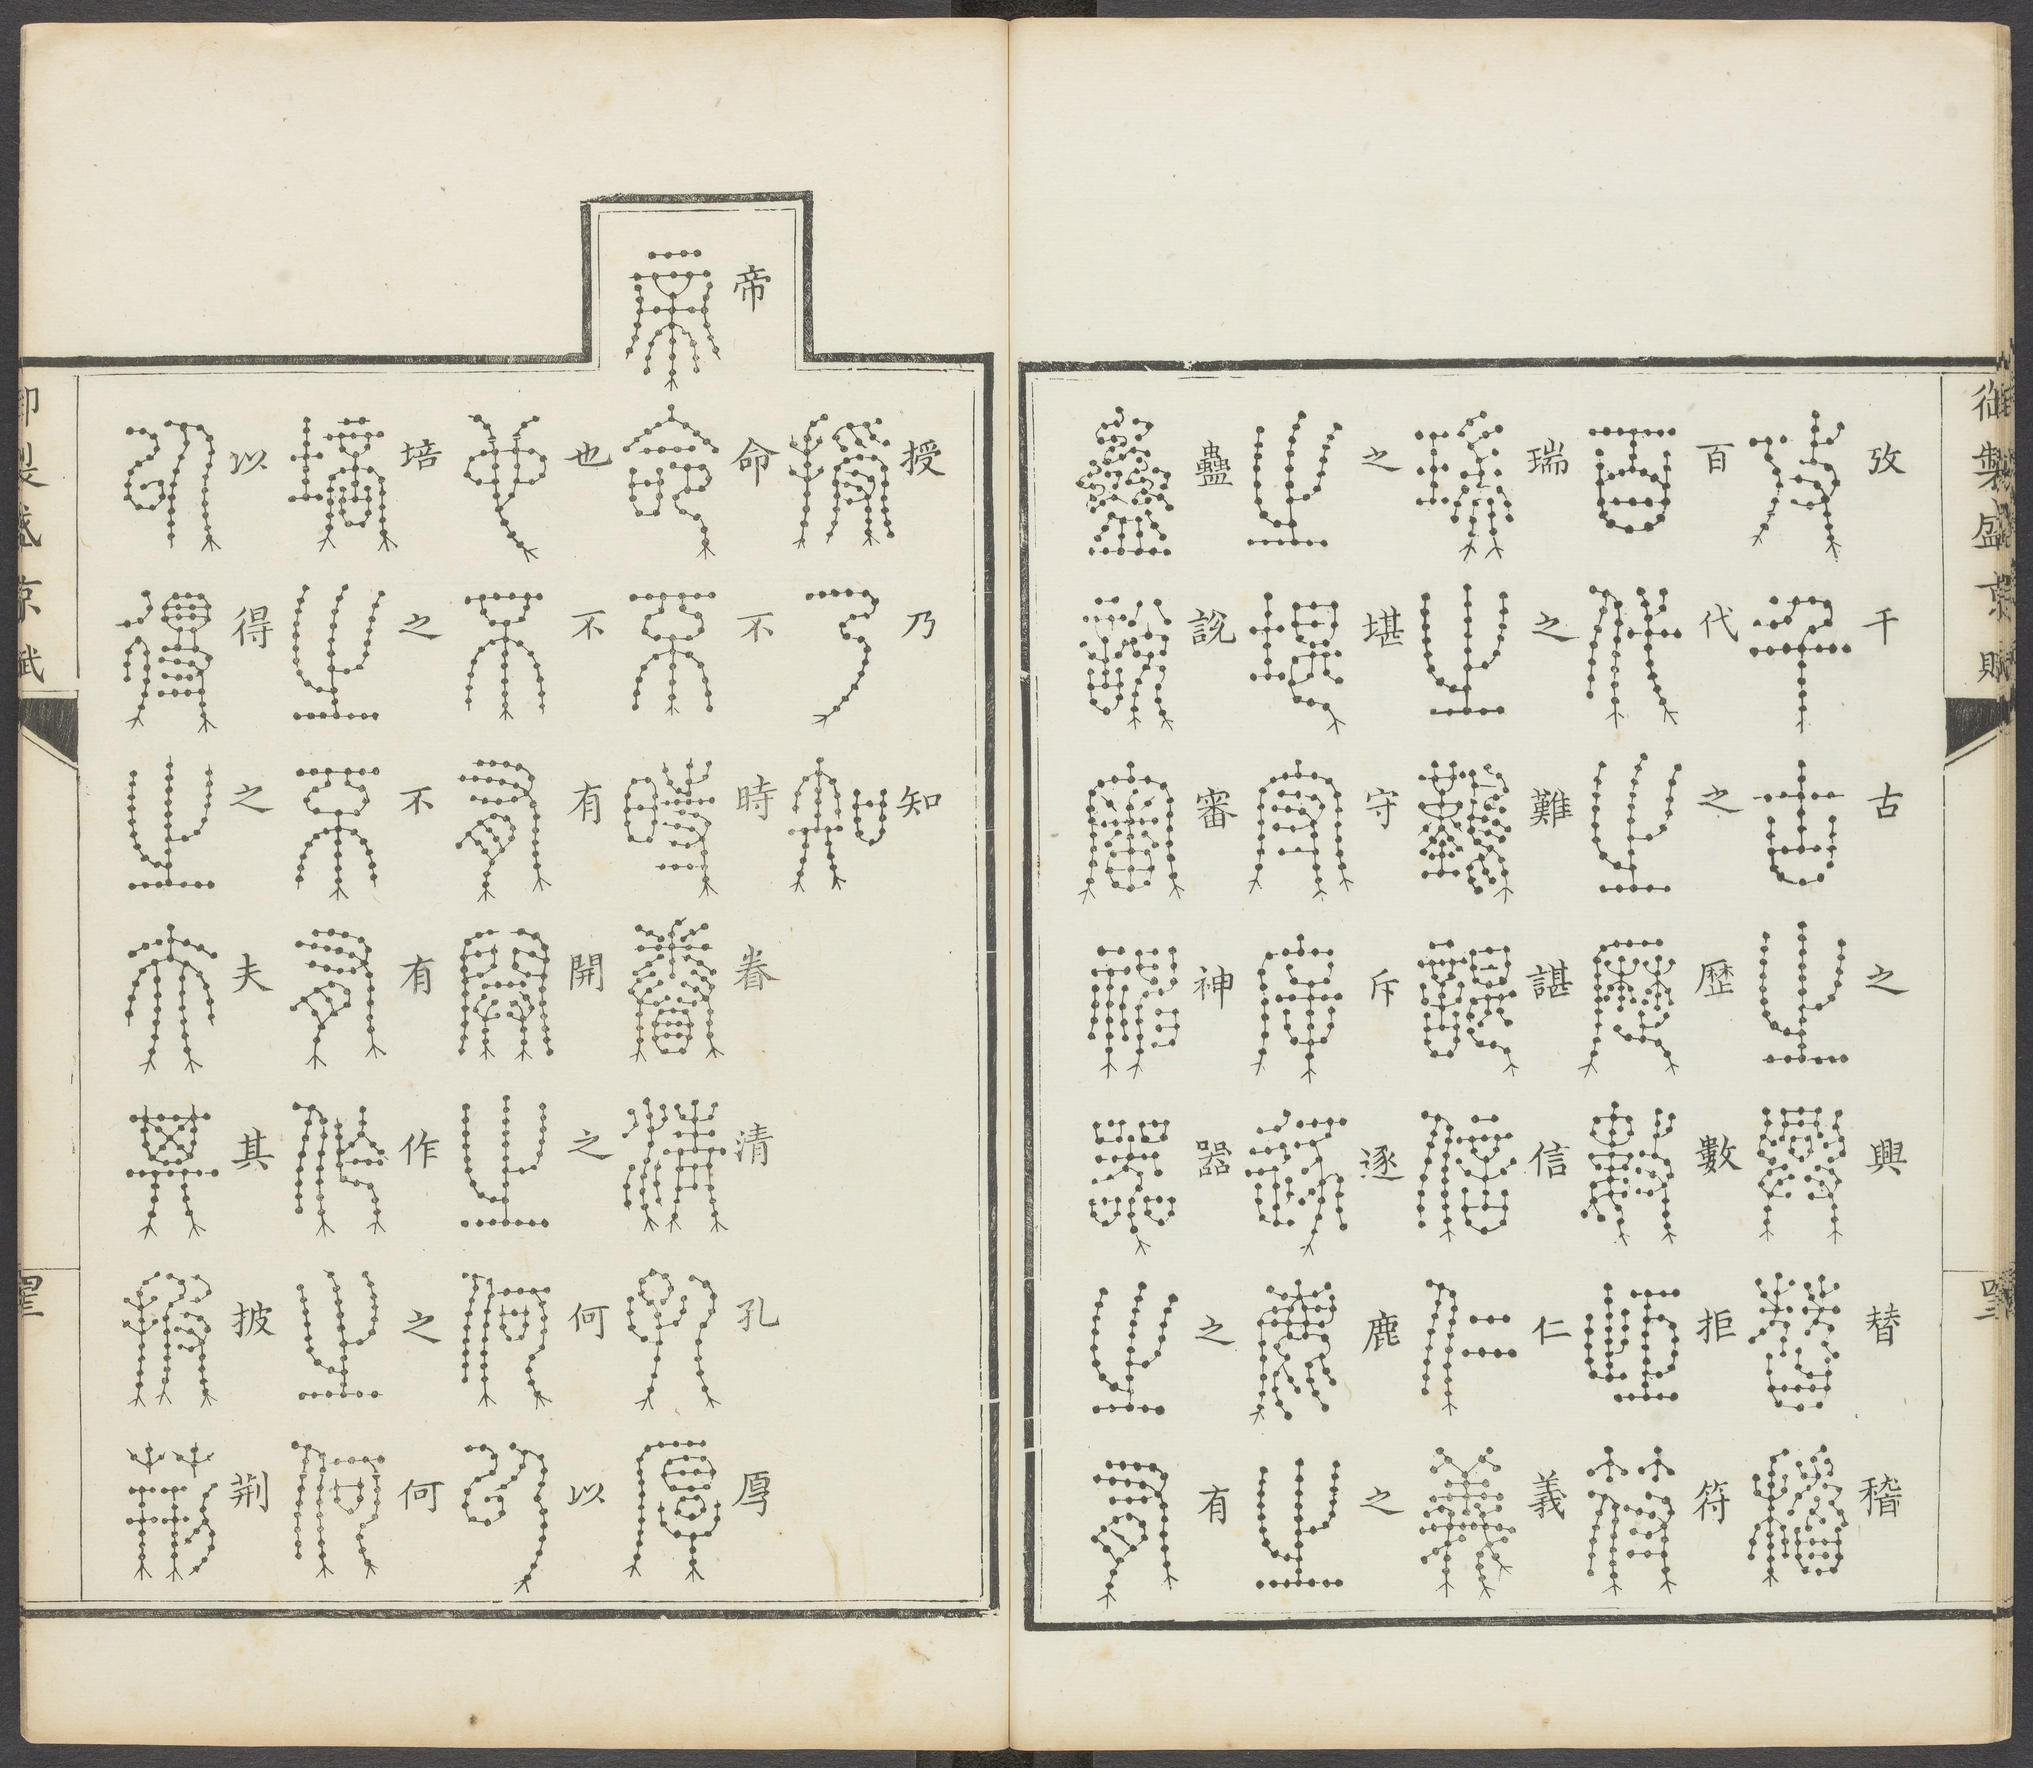 御製盛京賦
攷千古之興替稽
百代之歷數拒符
瑞之難諶信仁義
之堪守斥逐鹿之
蠱說審神器之有
授乃知
帝命不時眷清孔厚
也不有開之何以
培之不有作之何
以得之夫其披荆
御製盛京賦